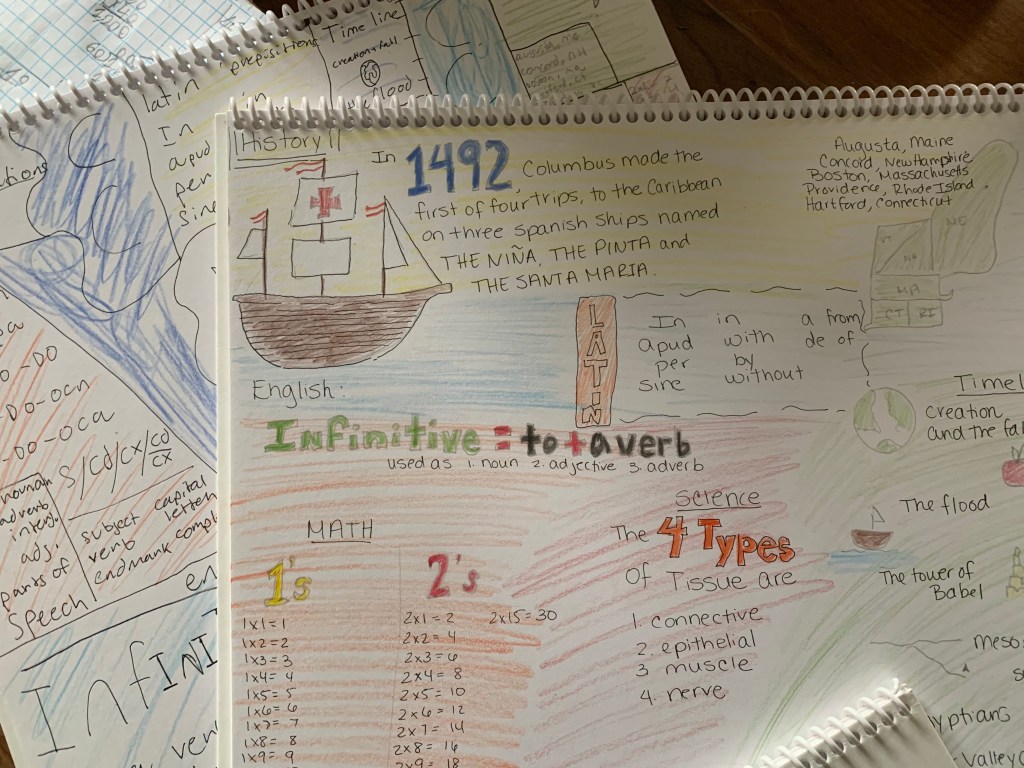 History
In 1492, Columbus made the
first of four trips, to the Caribbean
on three spanish ships named
THE NIÑA, THE PINTA and
THE SANTA MARIA.
Augusta, Maine
Concord, New Hampshire
Boston, Massachusetts
Providence, Rhode Island
Hartford, Connecticut
VT
NH
ME
MA
CT
RI
LATIN
In in a from
apud with de of
per by
sine without
English:
Infinitive = to + a verb
used as 1. noun 2. adjective 3. adverb
MATH
1's
1x1=1
1x2=2
1x3=3
1x4=4
1x5=5
1x6=6
1x7=7
1x8=8
1x9=9
2's
2x1=2
2x2=4
2x3=6
2x4=8
2x5=10
2x6=12
2x7=14
2x8=16
2x9=18
2x15=30
science
The 4 Types
of Tissue are
1. connective
2. epithelial
3. muscle
4. nerve
Timel
Creation
and the fa
The flood
The tower of
Babel
Meso
yptians
Valley
prepositions
latin
In
apud
per
sine
in
Time line
creation + fall
flood
-DO
-DO-ocn
-DO-oca
s/cd/cx/cd
cx
adverb
interj.
adj.
parts of
Speech
subject
verb
endmark
capital
letter
compl
en
InfINI
ver